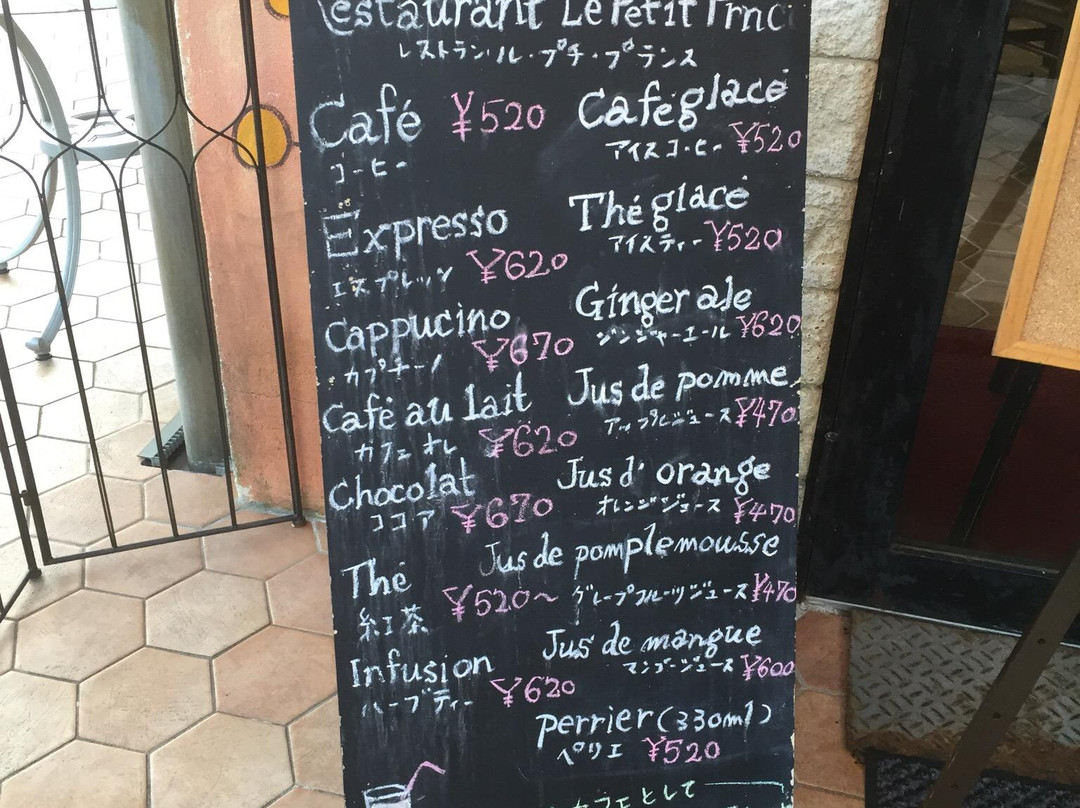 Restaurant Le Petit Princ
レストラン・ル・プチ・プランス
Café ¥520
コーヒー
Expresso
エスプレッソ ¥620
Cappucino
カプチーノ ¥670
Café au lait
カフェオレ ¥620
Chocolat
ココア ¥670
Thé
紅茶 ¥520~
Infusion
ハーブティー ¥620
Café glacé
アイスコーヒー ¥520
Thé glacé
アイスティー ¥520
Ginger ale
ジンジャーエール ¥620
Jus de pomme
アップルジュース ¥470
Jus d' orange
オレンジジュース ¥470
Jus de pomplemousse
グレープフルーツジュース ¥470
Jus de mangue
マンゴージュース ¥600
perrier (330ml)
ペリエ ¥520
カフェとして